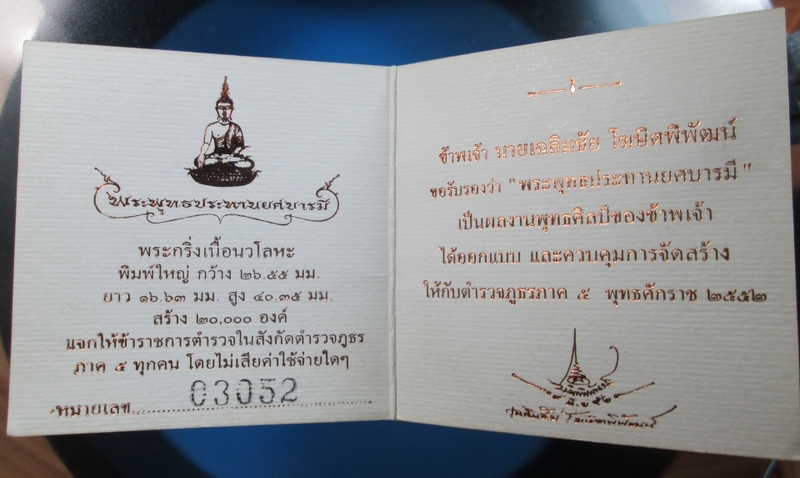 พระพุทธประทานยศบารมี
พระกริ่งเนื้อนวโลหะ
พิมพ์ใหญ่ กว้าง ๒๖.๕๕ มม.
ยาว ๑๖.๖๓ มม. สูง ๔๐.๓๕ มม.
สร้าง ๒๐,๐๐๐ องค์
แจกให้ข้าราชการตำรวจในสังกัดตำรวจภูธร
ภาค ๕ ทุกคน โดยไม่เสียค่าใช้จ่ายใดๆ
หมายเลข 03052
ข้าพเจ้า นายเฉลิมชัย โฆษิตพิพัฒน์
ขอรับรองว่า "พระพุทธประทานยศบารมี"
เป็นผลงานพุทธศิลป์ของข้าพเจ้า
ได้ออกแบบ และควบคุมการจัดสร้าง
ให้กับตำรวจภูธรภาค ๕ พุทธศักราช ๒๕๕๒